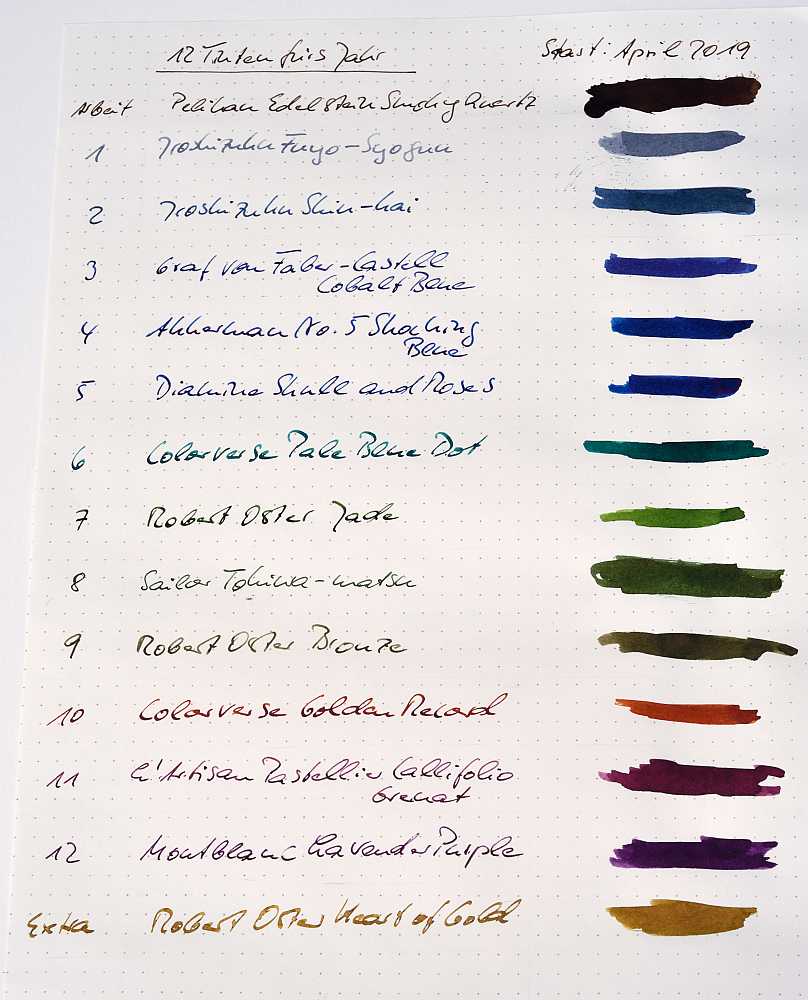 12 Tinten fürs Jahr
Start: April 2019
Arbeit Pelikan Edelstein Smoky Quartz
1 Troshizuku Fuyo-Syogun
2 Iroshizuku Shin-kai
3 Graf von Faber-Castell
Cobalt Blue
4 Akkerman No. 5 Shocking
Blue
5 Diamine Skull and Roses
6 Colorverse Pale Blue Dot
7 Robert Oster Jade
8 Sailor Tokiwa-matsu
9 Robert Oster Bronze
10 Colorverse Golden Record
11 L'Artisan Pastellier Callifolio
Grenat
12 Montblanc Lavender Purple
Extra Robert Oster Heart of Gold